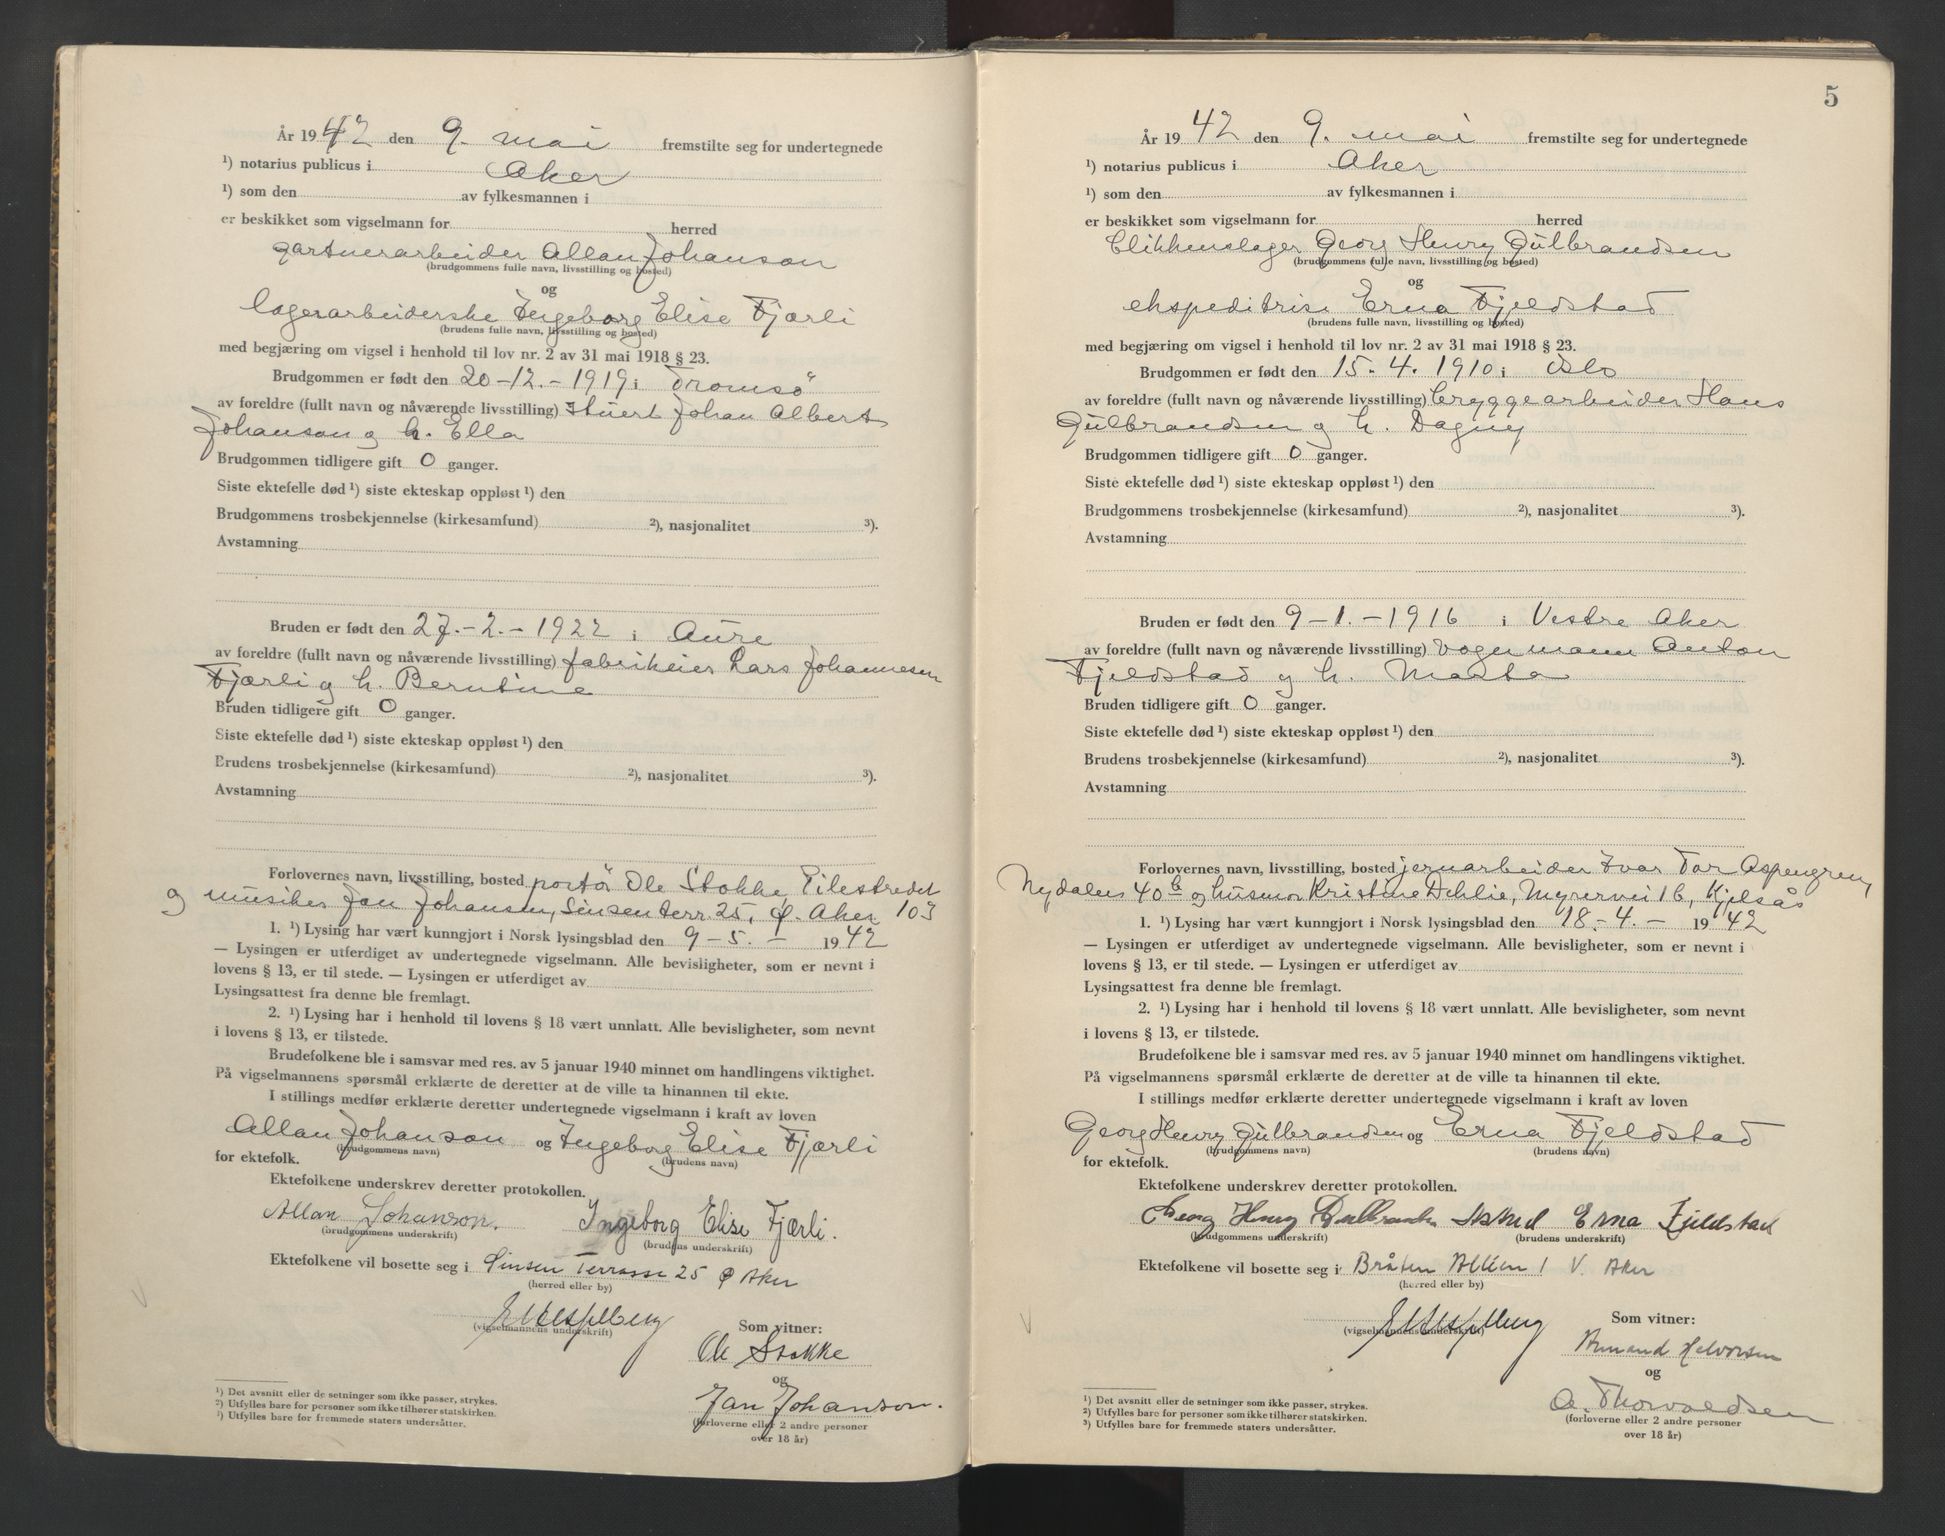 År 1942 den 9. mai fremstilte seg for undertegnede
¹) notarius publicus i Aker
¹) som den av fylkesmannen i
er beskikket som vigselmann for herred
gartnerarbeider Allan Johanson
(brudgommens fulle navn, livsstilling og bosted)
og
lagerarbeiderske Ingeborg Elise Fjærli
(brudens fulle navn, livsstilling og bosted)
med begjæring om vigsel i henhold til lov nr. 2 av 31 mai 1918 § 23.
Brudgommen er født den 20-12.-1919 i Tromsö
av foreldre (fullt navn og nåværende livsstilling) Stuert Johan Albert
Johanson og h. Ella
Brudgommen tidligere gift 0 ganger.
Siste ektefelle død ¹) siste ekteskap oppløst ¹) den
Brudgommens trosbekjennelse (kirkesamfund) ²), nasjonalitet ³).
Avstamning
Bruden er født den 27.-2.-1922 i Aure
av foreldre (fullt navn og nåværende livsstilling) fabrikeier Lars Johannesen
Fjærli og h. Berntine
Bruden tidligere gift 0 ganger.
Siste ektefelle død ¹) siste ekteskap oppløst ¹) den
Brudens trosbekjennelse (kirkesamfund) ²), nasjonalitet ³).
Avstamning
Forlovernes navn, livsstilling, bosted portör Ole Stokke, Pilestredet
og musiker Jan Johansen, Sinsen terr. 25, Ø. Aker 103
1. ¹) Lysing har vært kunngjort i Norsk lysingsblad den 9-5.- 1942
— Lysingen er utferdiget av undertegnede vigselmann. Alle bevisligheter, som er nevnt i
lovens § 13, er til stede. — Lysingen er utferdiget av
Lysingsattest fra denne ble fremlagt.
2. ¹) Lysing har i henhold til lovens § 18 vært unnlatt. Alle bevisligheter, som nevnt
i lovens § 13, er tilstede.
Brudefolkene ble i samsvar med res. av 5 januar 1940 minnet om handlingens viktighet.
På vigselmannens spørsmål erklærte de deretter at de ville ta hinannen til ekte.
I stillings medfør erklærte deretter undertegnede vigselmann i kraft av loven
Allan Johanson og Ingeborg Elise Fjærli
(brudgommens navn) (brudens navn)
for ektefolk.
Ektefolkene underskrev deretter protokollen.
Allan Johanson. Ingeborg Elise Fjærli.
(brudgommens underskrift) (brudens underskrift)
Ektefolkene vil bosette seg i Sinsen Terrasse 25 Ø Aker
(herred eller by)
(vigselmannens underskrift) Som vitner:
Ole Stokke
og
Jan Johanson.
(forloverne eller 2 andre personer
over 18 år)
¹) Det avsnitt eller de setninger som ikke passer, strykes.
²) Utfylles bare for personer som ikke tilhører statskirken.
³) Utfylles bare for fremmede staters undersåtter.
5
År 1942 den 9. mai fremstilte seg for undertegnede
¹) notarius publicus i Aker
¹) som den av fylkesmannen i
er beskikket som vigselmann for herred
blikkenslager Georg Henry Gulbrandsen
(brudgommens fulle navn, livsstilling og bosted)
og
ekspeditrise Erna Fjeldstad
(brudens fulle navn, livsstilling og bosted)
med begjæring om vigsel i henhold til lov nr. 2 av 31 mai 1918 § 23.
Brudgommen er født den 15.-4.1910 i Oslo
av foreldre (fullt navn og nåværende livsstilling) bryggearbeider Hans
Gulbrandsen og h. Dagny
Brudgommen tidligere gift 0 ganger.
Siste ektefelle død ¹) siste ekteskap oppløst ¹) den
Brudgommens trosbekjennelse (kirkesamfund) ²), nasjonalitet ³).
Avstamning
Bruden er født den 9-1.-1916 i Vestre Aker
av foreldre (fullt navn og nåværende livsstilling) vognmann Anton
Fjeldstad og h. Marta
Bruden tidligere gift 0 ganger.
Siste ektefelle død ¹) siste ekteskap oppløst ¹) den
Brudens trosbekjennelse (kirkesamfund) ²), nasjonalitet ³).
Avstamning
Forlovernes navn, livsstilling, bosted jernarbeider Ivar Tor Aspengren,
Nydalen 40 b og husmor Kristine Dehlie, Myrervei 16, Kjelsås
1. ¹) Lysing har vært kunngjort i Norsk lysingsblad den 18.-4.- 1942
— Lysingen er utferdiget av undertegnede vigselmann. Alle bevisligheter, som er nevnt i
lovens § 13, er til stede. — Lysingen er utferdiget av
Lysingsattest fra denne ble fremlagt.
2. ¹) Lysing har i henhold til lovens § 18 vært unnlatt. Alle bevisligheter, som nevnt
i lovens § 13, er tilstede.
Brudefolkene ble i samsvar med res. av 5 januar 1940 minnet om handlingens viktighet.
På vigselmannens spørsmål erklærte de deretter at de ville ta hinannen til ekte.
I stillings medfør erklærte deretter undertegnede vigselmann i kraft av loven
Georg Henry Gulbrandsen og Erna Fjeldstad
(brudgommens navn) (brudens navn)
for ektefolk.
Ektefolkene underskrev deretter protokollen.
Georg Henry Gulbrandsen Erna Fjeldstad
(brudgommens underskrift) (brudens underskrift)
Ektefolkene vil bosette seg i Bråten Alleen 1 V. Aker
(herred eller by)
(vigselmannens underskrift) Som vitner:
Armand Halvorsen
og
A. Thorvaldsen
(forloverne eller 2 andre personer
over 18 år)
¹) Det avsnitt eller de setninger som ikke passer, strykes.
²) Utfylles bare for personer som ikke tilhører statskirken.
³) Utfylles bare for fremmede staters undersåtter.